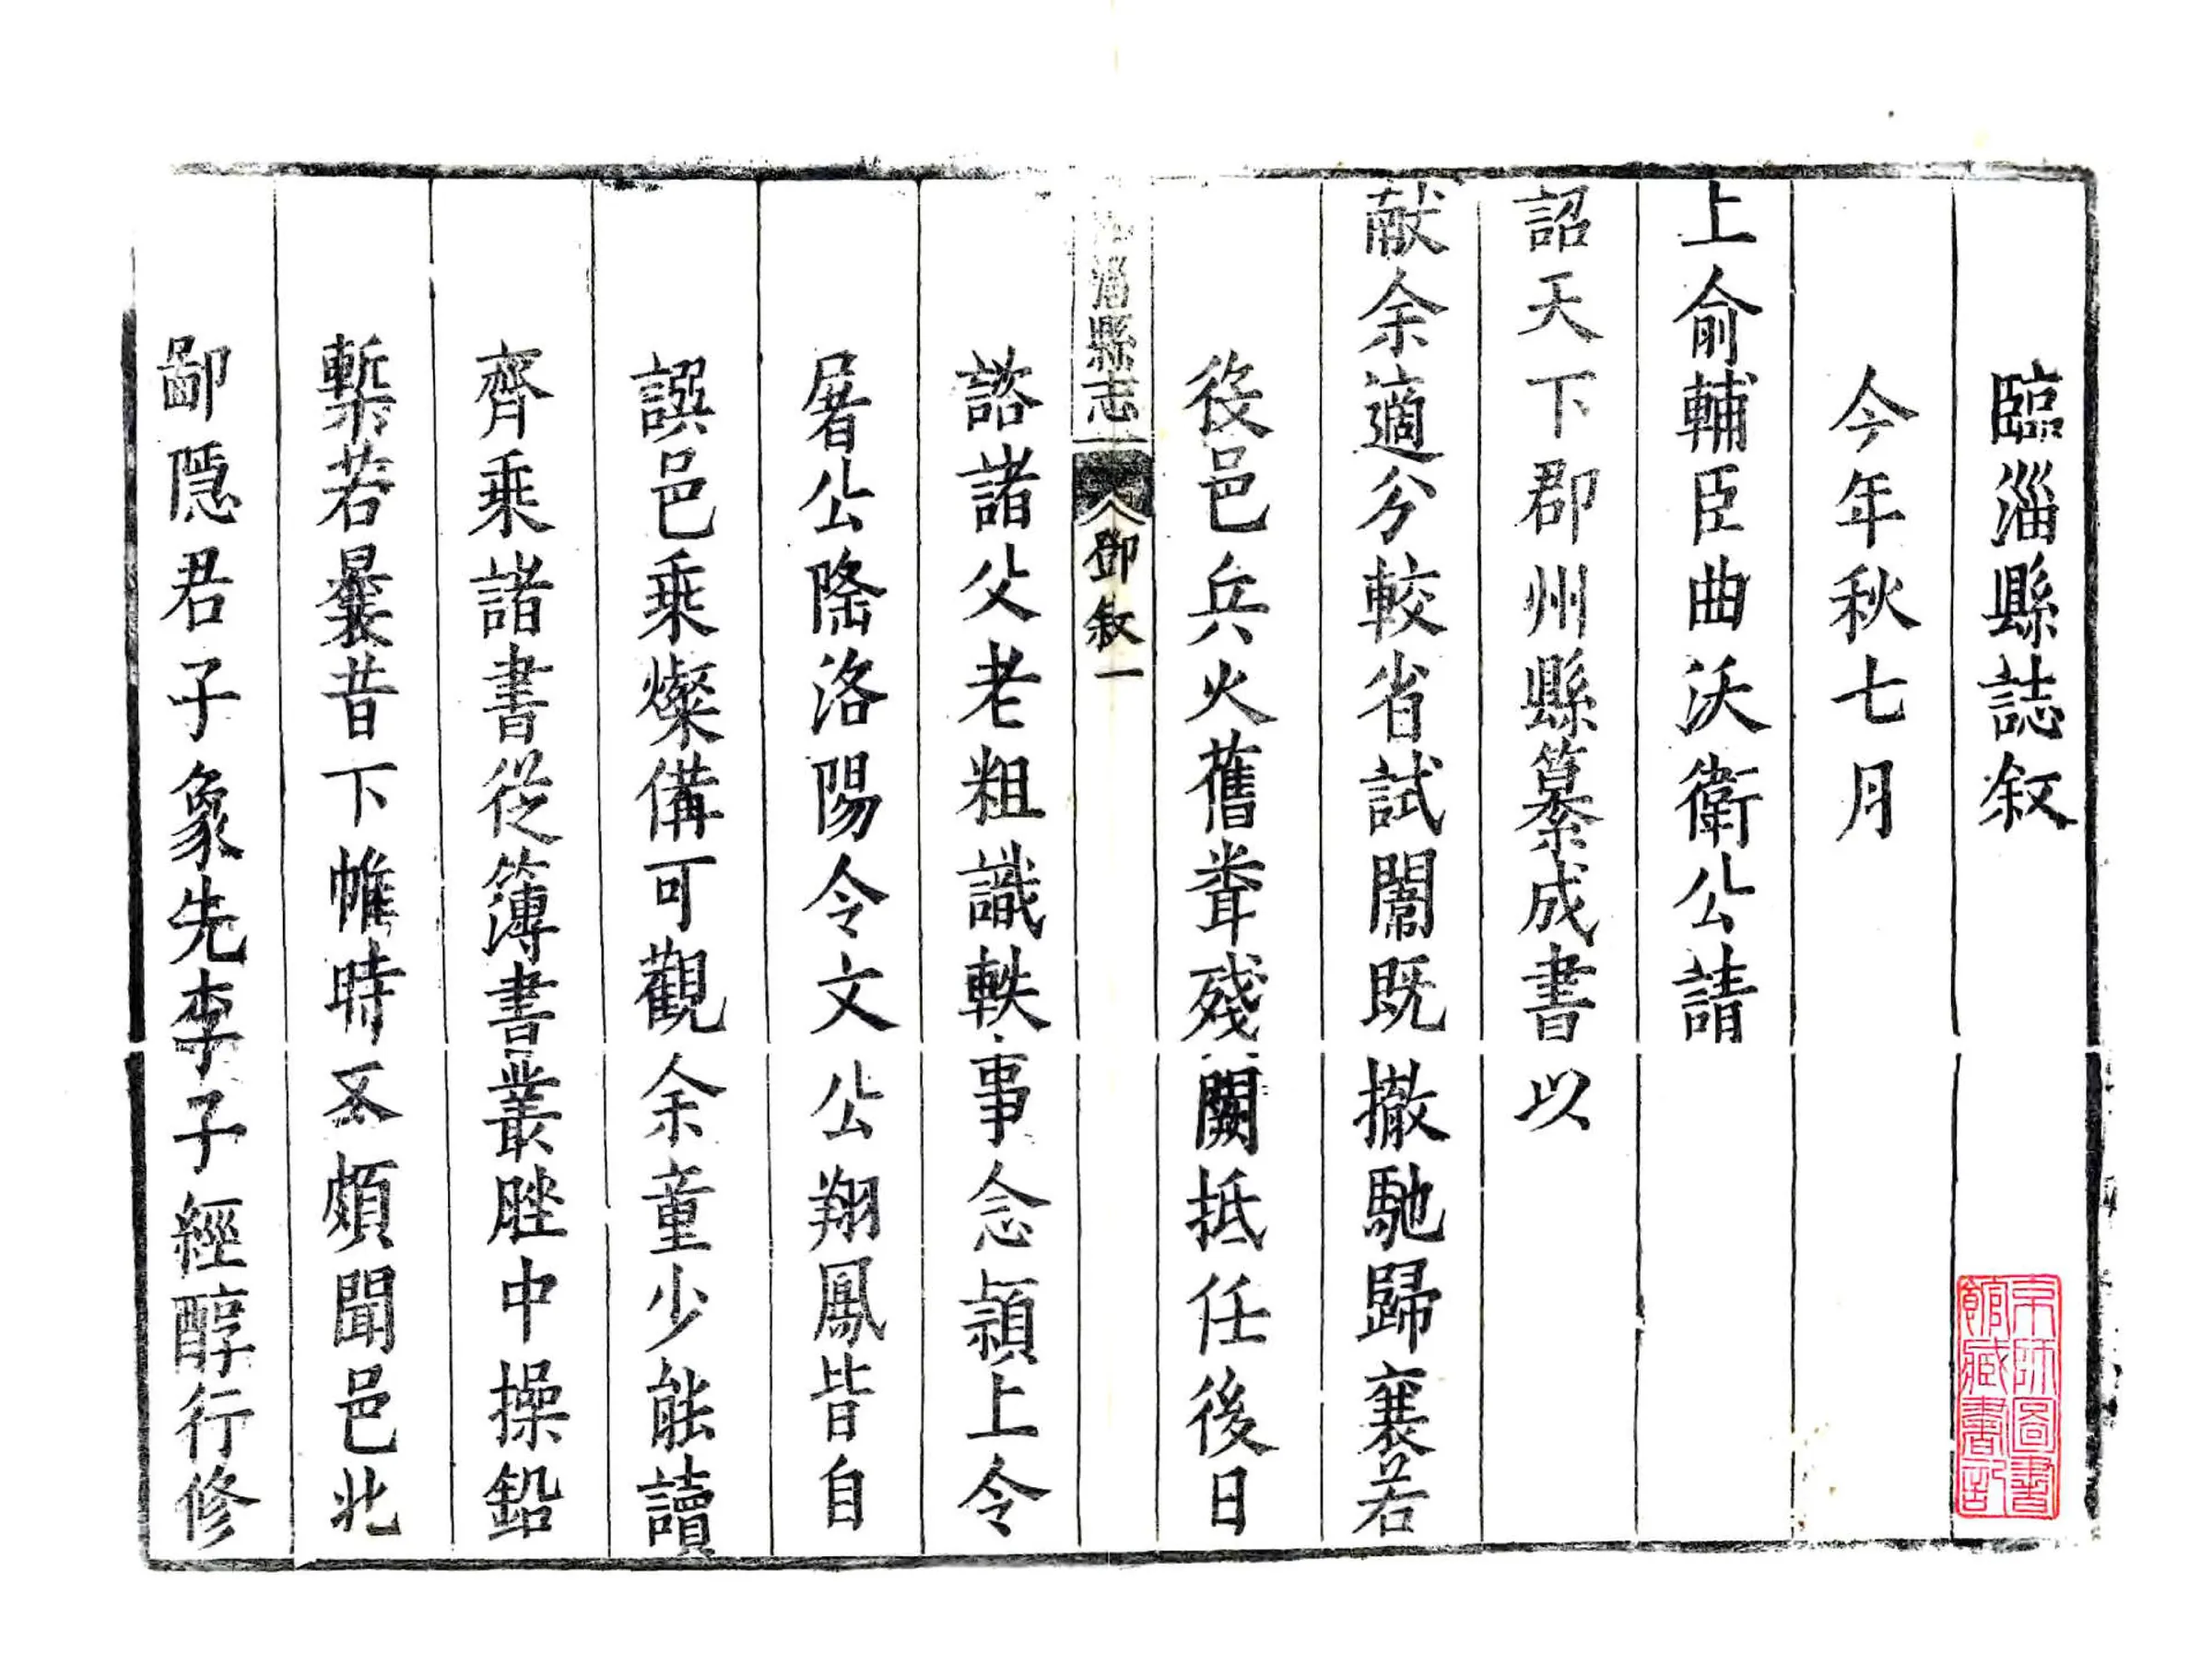 臨淄縣誌敘
今年秋七月
上俞輔臣曲沃衛公請
詔天下郡州縣纂成書以
献余適分較省試闈既撤馳歸襄若
役邑兵火舊耑殘闕抵任後日
諮諸父老粗識軼事念潁上令
屠公隆洛陽令文公翔鳳皆自
譔邑乘燦備可觀余童少能讀
齊乘諸書從簿書叢脞中操鉛
槧若曩昔下帷時不頗聞邑北
鄙隱君子象先李子經醇行修
淄縣志
鄧敘一
京師圖書
館藏書記